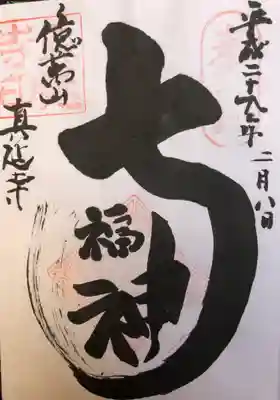 平成二十九年
二月八日
七福神
億萬山
真延寺